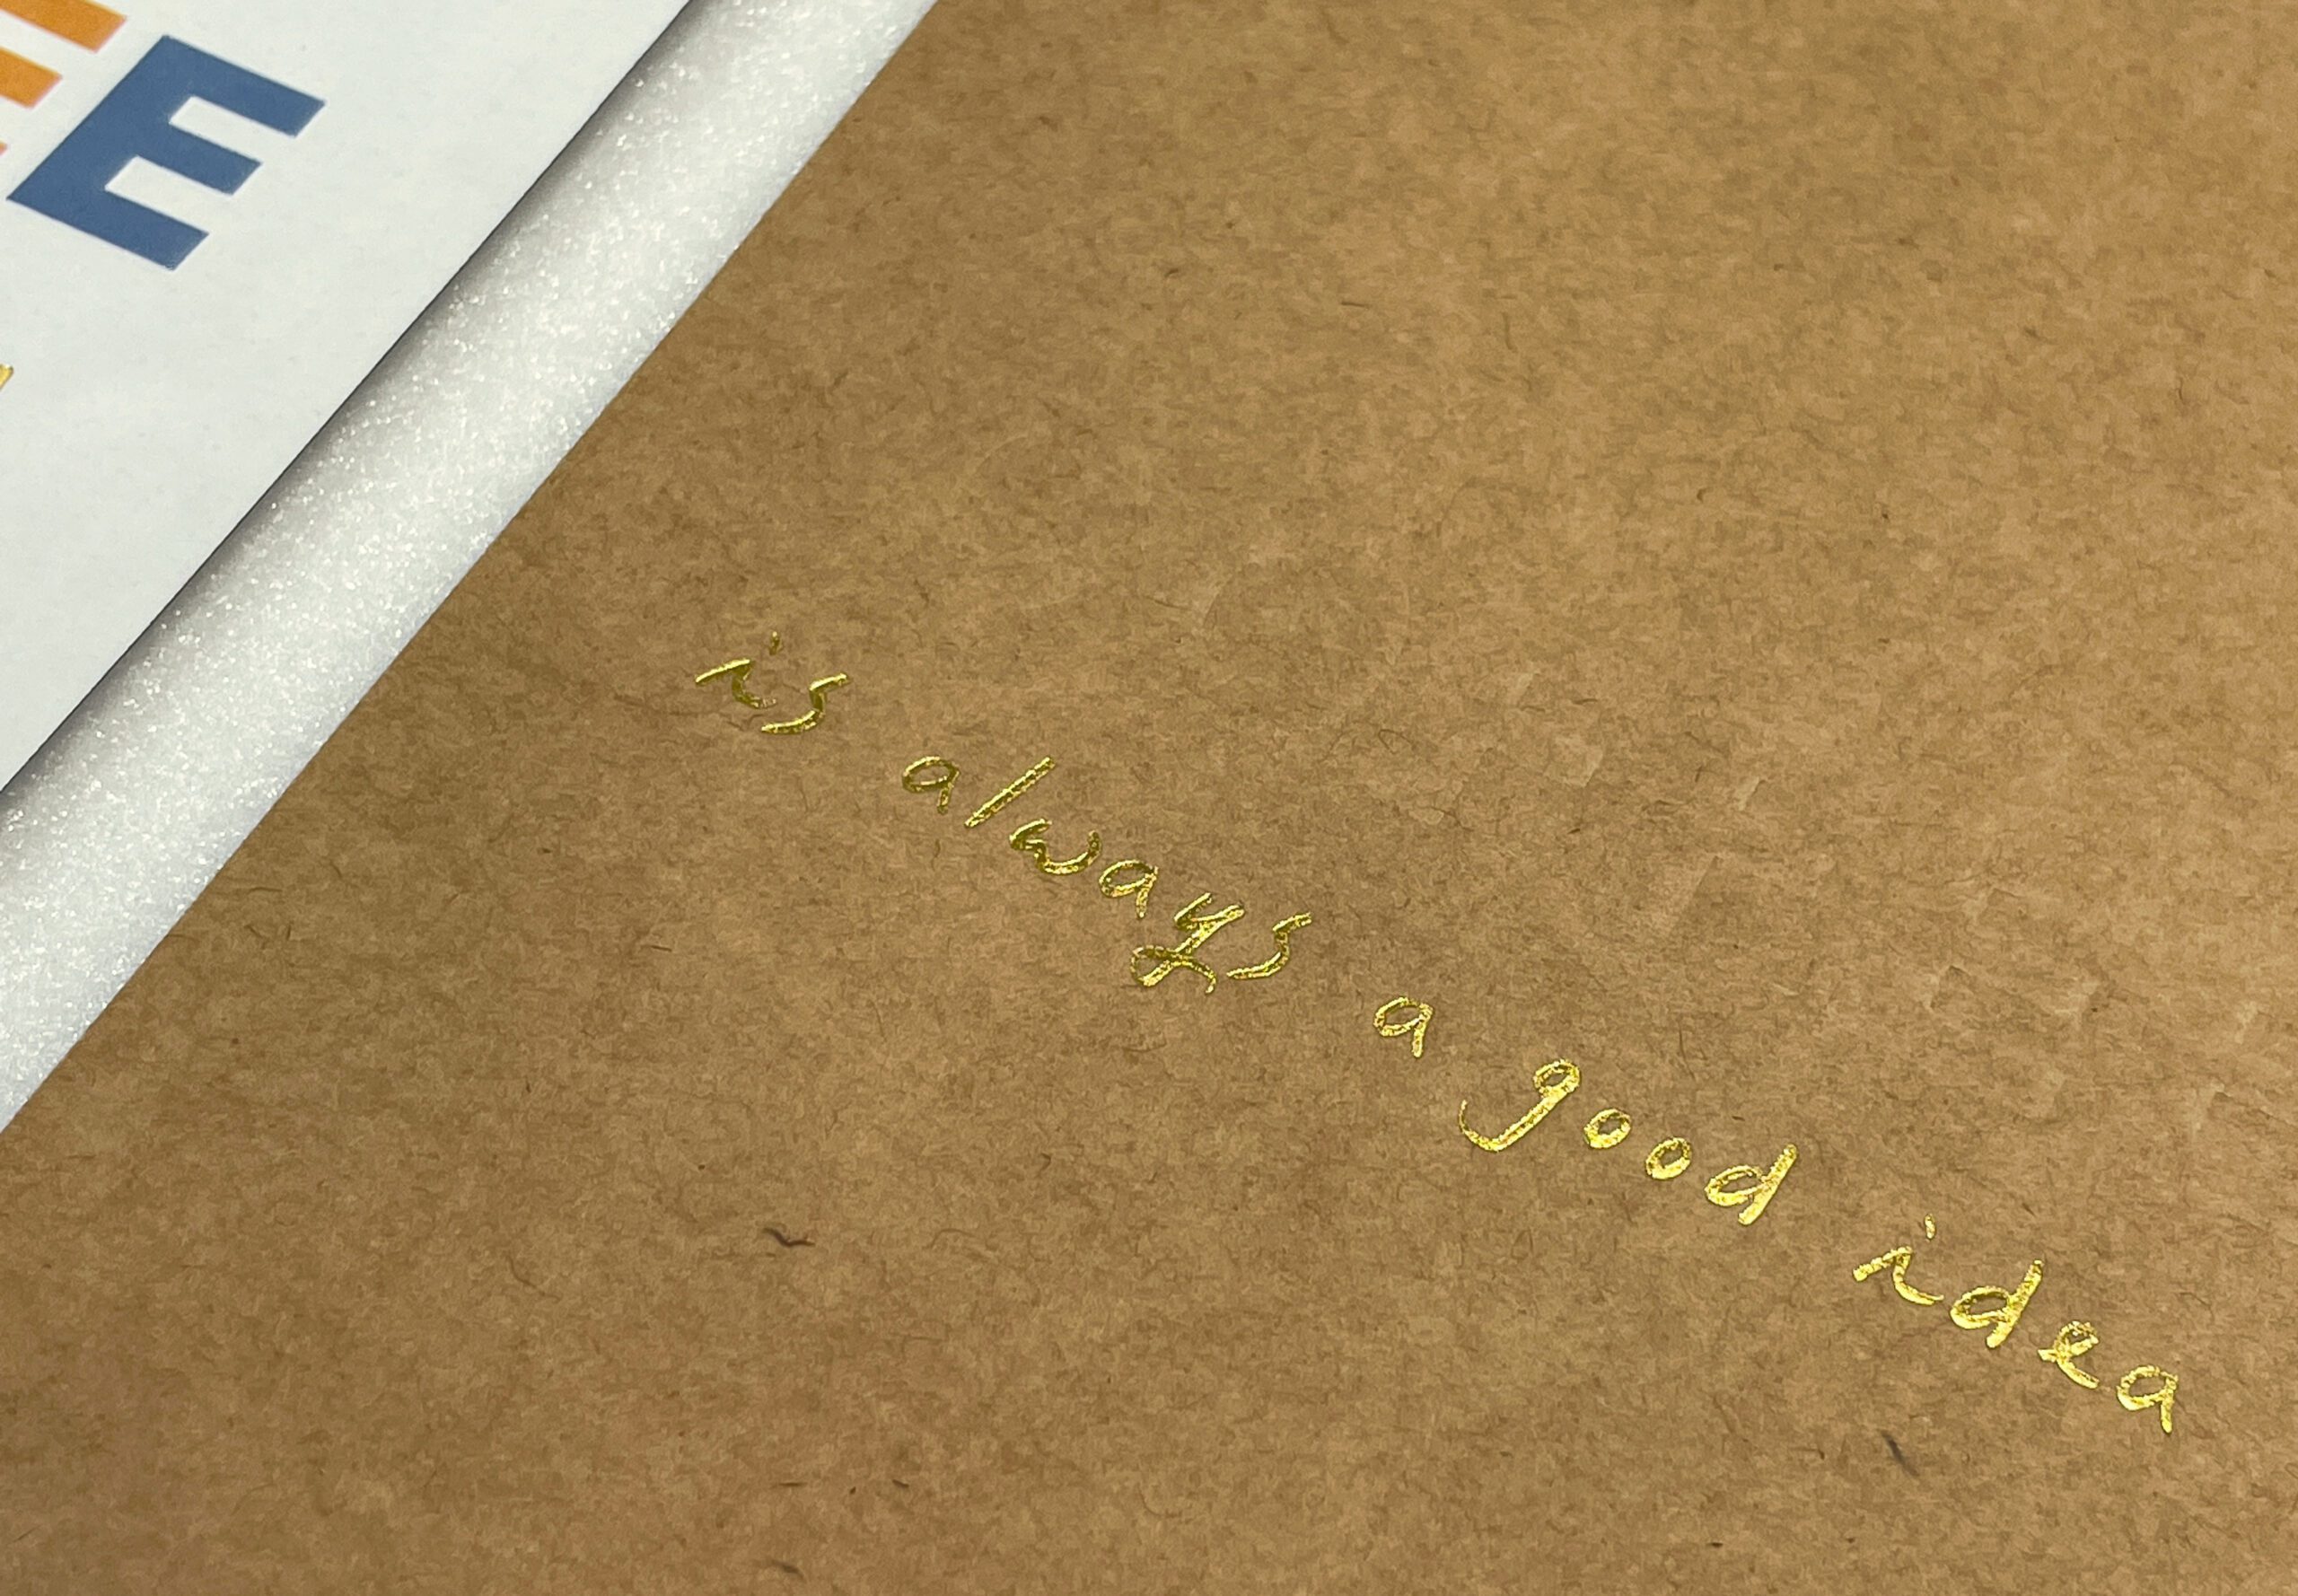 E
is always a good idea